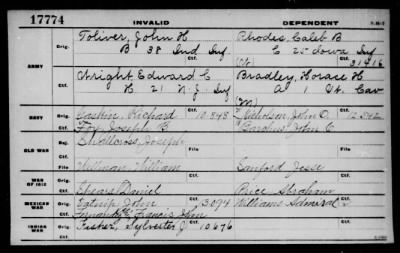 17774 INVALID DEPENDENT
ARMY Orig. Toliver, John H Rhodes, Caleb B
B 38 Ind Inf C 25 Iowa Inf
Ctf. 31416
Orig. Wright Edward C Bradley, Horace H
H 21 N.J. Inf A 1 Vt. Cav
Ctf.
NAVY Orig. Richard 10.848 Nicholson, John O. 12.542
Ctf. Fox, Joseph John
OLD WAR Orig. Joseph
File File
Ctf. Hillman William Sanford Jesse
WAR OF 1812 Orig. Shears Daniel Price Abraham
Ctf.
MEXICAN WAR Orig. John 3094 Williams Admiral
Ctf. Francis John
INDIAN WAR Orig. Fisher, Sylvester J. 10676
Ctf.